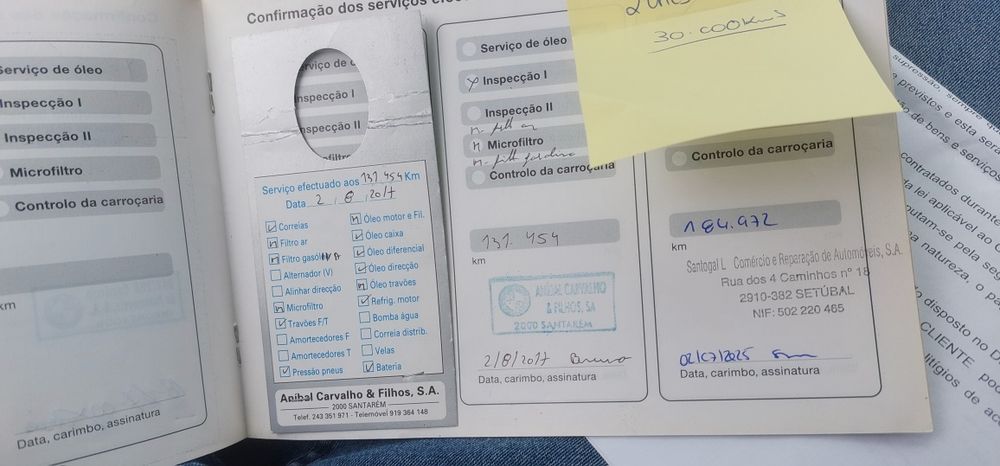 Confirmação dos serviços
Serviço de óleo
Inspecção I
Inspecção II
Microfiltro
Controlo da carroçaria
km
Data, carimbo, assinatura
rviço de
nspecção I
nspecção II
Serviço efectuado aos 131.454 Km
Data 2, 8, 2017
Correias
Filtro ar
Filtro gasól
Alternador (V)
Alinhar direcção
Microfiltro
Travões F/T
Amortecedores F
Amortecedores T
Pressão pneus
Óleo motor e Fil.
Óleo caixa
Óleo diferencial
Óleo direcção
Óleo travões
Refrig. motor
Bomba água
Correia distrib.
Velas
Bateria
Aníbal Carvalho & Filhos, S.A.
2000 SANTARÉM
Telef. 243 351 971 - Telemóvel 919 364 148
Serviço de óleo
Inspecção I
Inspecção II
Microfiltro
Controlo da carroçaria
131.454
km
ANÍBAL CARVALHO
& FILHOS, SA
2000 SANTARÉM
2/8/2017
Data, carimbo, assinatura
30.000Kms
Controlo da carroçaria
184.972
km
Santogal L Comércio e Reparação de Automóveis, S.A.
Rua dos 4 Caminhos nº 18
2910-382 SETÚBAL
NIF: 502 220 465
02/07/2025
Data, carimbo, assinatura
supressão, sempre
previstos e esta será
de bens e serviços
contratados durante
lei aplicável ao
pela
natureza, o
disposto no
CLIENTE
litígios de